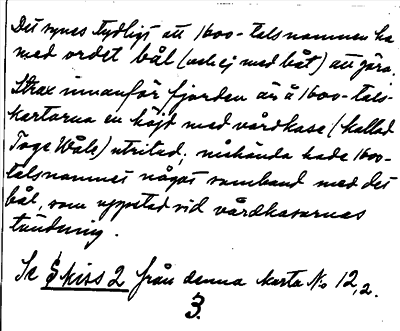 Det synes tydligt att 1600-talsnamnen ha
med ordet bål (och ej med båt) att göra.
Strax innanför fjorden är å 1600-tals-
kartorna en höjd med vårdkase (kallad
Toge Wåle) utritad; måhända hade 1600-
talsnamnet något samband med det
bål, som uppstod vid vårdkasarnas
tändning.
Se Skiss 2 från denna karta No 12,2.
3.